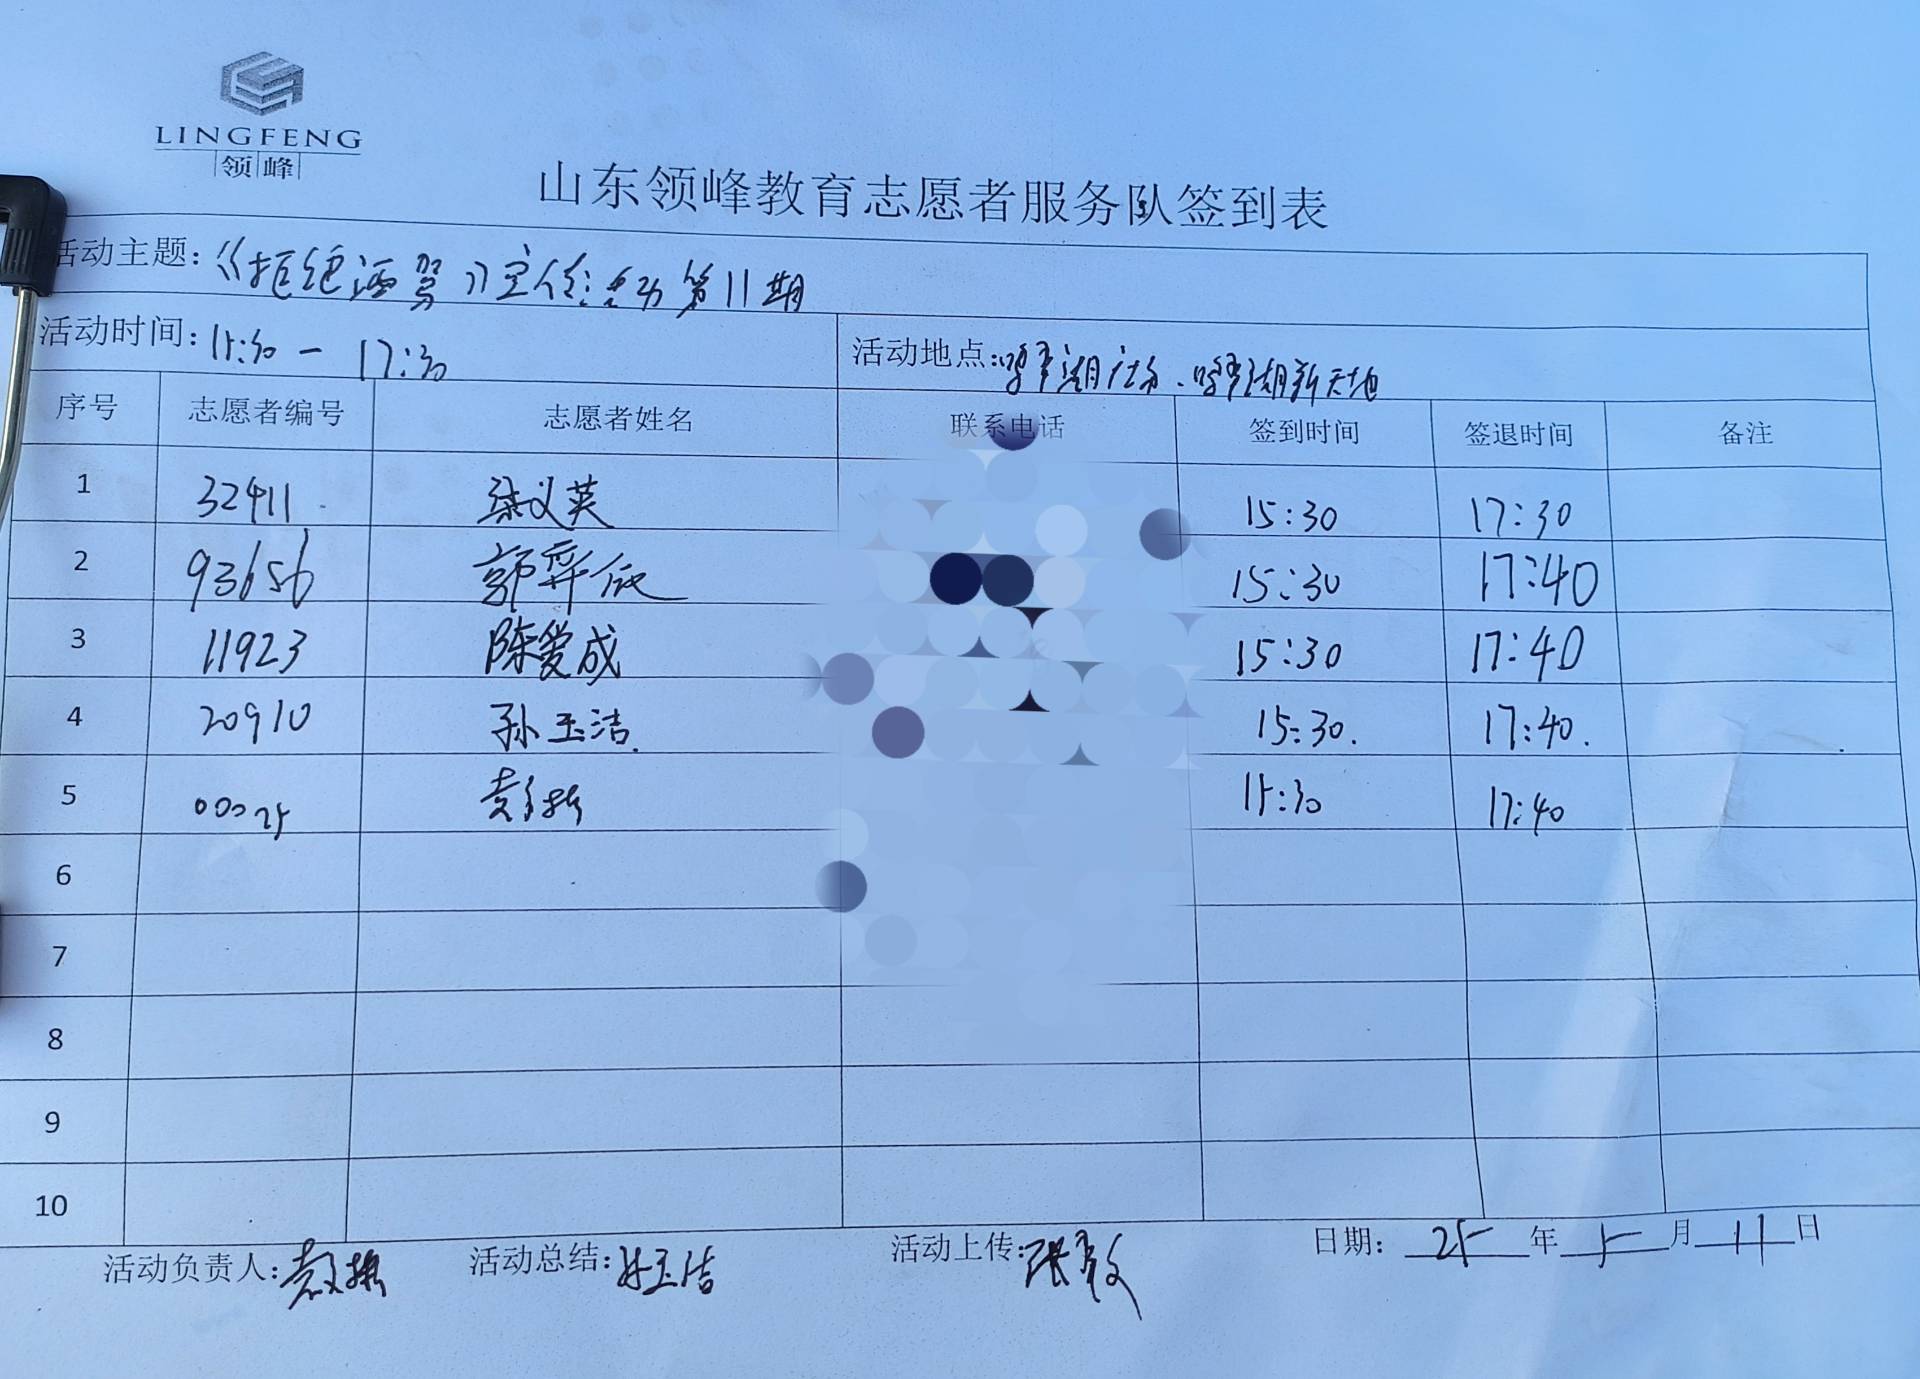 LINGFENG
领峰
山东领峰教育志愿者服务队签到表
活动主题：《拒绝酒驾》宣传活动第11期
活动时间：15:30 — 17:30 活动地点：
序号 志愿者编号 志愿者姓名 联系电话 签到时间 签退时间 备注
1 32411 梁义英 15:30 17:30
2 93656 郭弈欣 15:30 17:40
3 11923 陈爱成 15:30 17:40
4 20910 孙玉洁 15:30 17:40
5 00025 15:30 17:40
6
7
8
9
10
活动负责人： 活动总结：孙玉洁 活动上传： 日期：25年5月11日